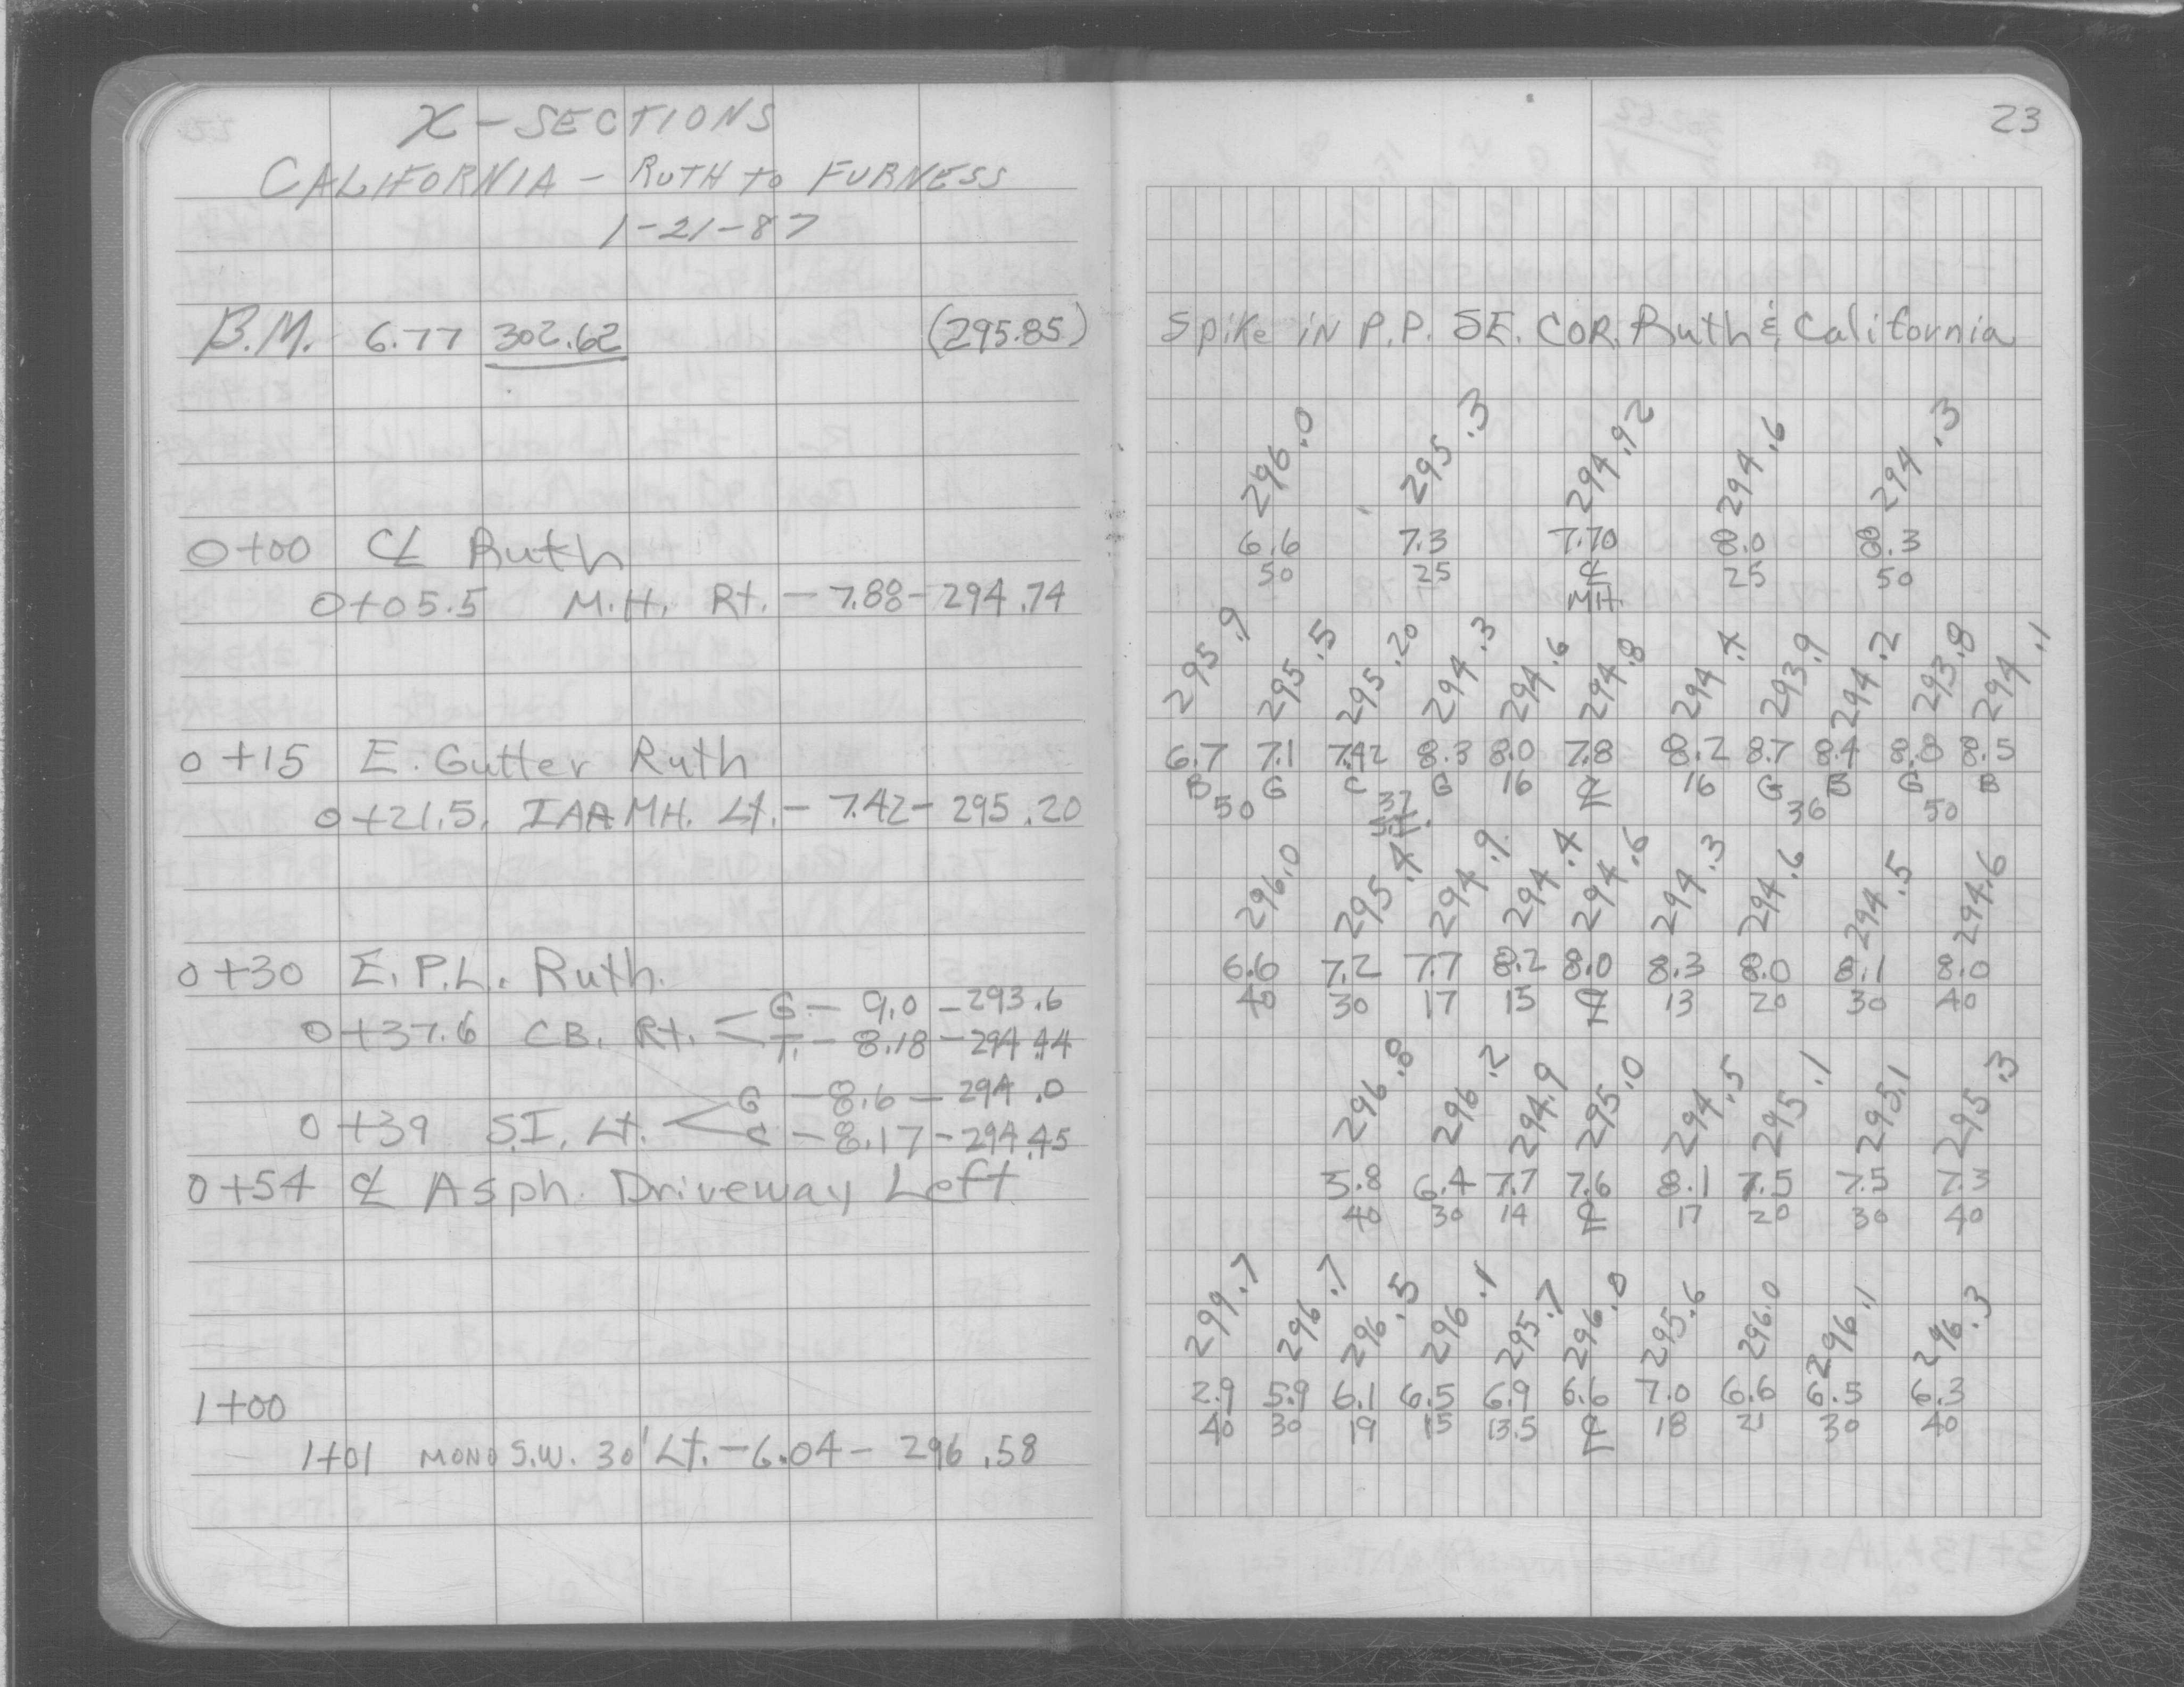 X-SECTIONS
CALIFORNIA - RUTH to FURNESS
1-21-87
B.M. 6.77 302.62 (295.85)
0+00 ℄ Ruth
0+05.5 M.H. Rt. - 7.88 - 294.74
0+15 E. Gutter Ruth
0+21.5, MH. Lt. - 7.42 - 295.20
0+30 E. P.L. Ruth.
G - 9.0 - 293.6
0+37.6 CB. Rt. <
T. - 8.18 - 294.44
G - 8.6 - 294.0
0+39 S.I. Lt. <
C - 8.17 - 294.45
0+54 ℄ Asph. Driveway Left
1+00
1+01 MONO S.W. 30' Lt. - 6.04 - 296.58
23
Spike in P.P. SE. COR. Ruth & California
296.0 295.3 294.92 294.6 294.3
6.6 7.3 7.70 8.0 8.3
50 25 ℄ 25 50
MH.
295.9 295.5 295.20 294.3 294.6 294.8 294.4 293.9 294.2 293.8 294.1
6.7 7.1 7.42 8.3 8.0 7.8 8.2 8.7 8.4 8.8 8.5
B G C G 16 ℄ 16 G B G B
50 37 36 50
296.0 295.4 294.9 294.4 294.6 294.3 294.6 294.5 294.6
6.6 7.2 7.7 8.2 8.0 8.3 8.0 8.1 8.0
40 30 17 15 ℄ 13 20 30 40
296.8 296.2 294.9 295.0 294.5 295.1 295.1 295.3
5.8 6.4 7.7 7.6 8.1 7.5 7.5 7.3
40 30 14 ℄ 17 20 30 40
299.7 296.7 296.5 296.1 295.7 296.0 295.6 296.0 296.1 296.3
2.9 5.9 6.1 6.5 6.9 6.6 7.0 6.6 6.5 6.3
40 30 19 15 13.5 ℄ 18 21 30 40